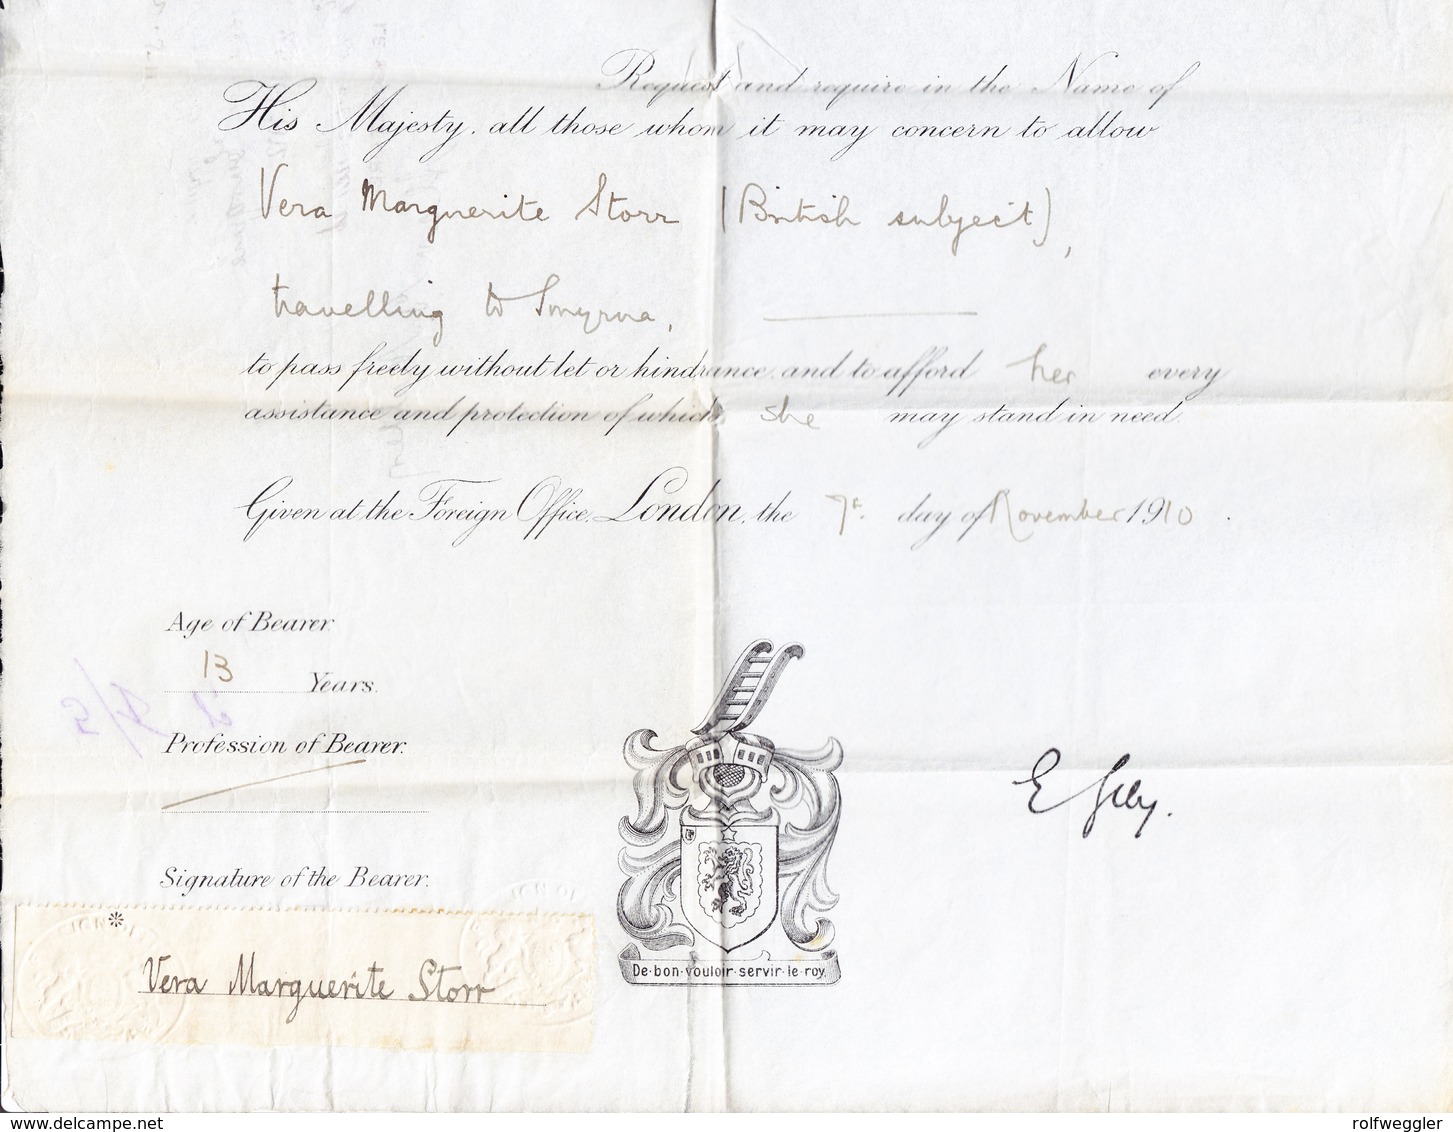 Request and require in the Name of
His Majesty, all those whom it may concern to allow
Vera Marguerite Storr (British subject),
travelling to Smyrna,
to pass freely without let or hindrance, and to afford her every
assistance and protection of which she may stand in need.
Given at the Foreign Office, London, the 7th day of November 1910.
Age of Bearer
13 Years.
Profession of Bearer.
Signature of the Bearer.
*
Vera Marguerite Storr
De·bon·vouloir·servir·le·roy.
E Grey.
www.delcampe.net
rolfweggler